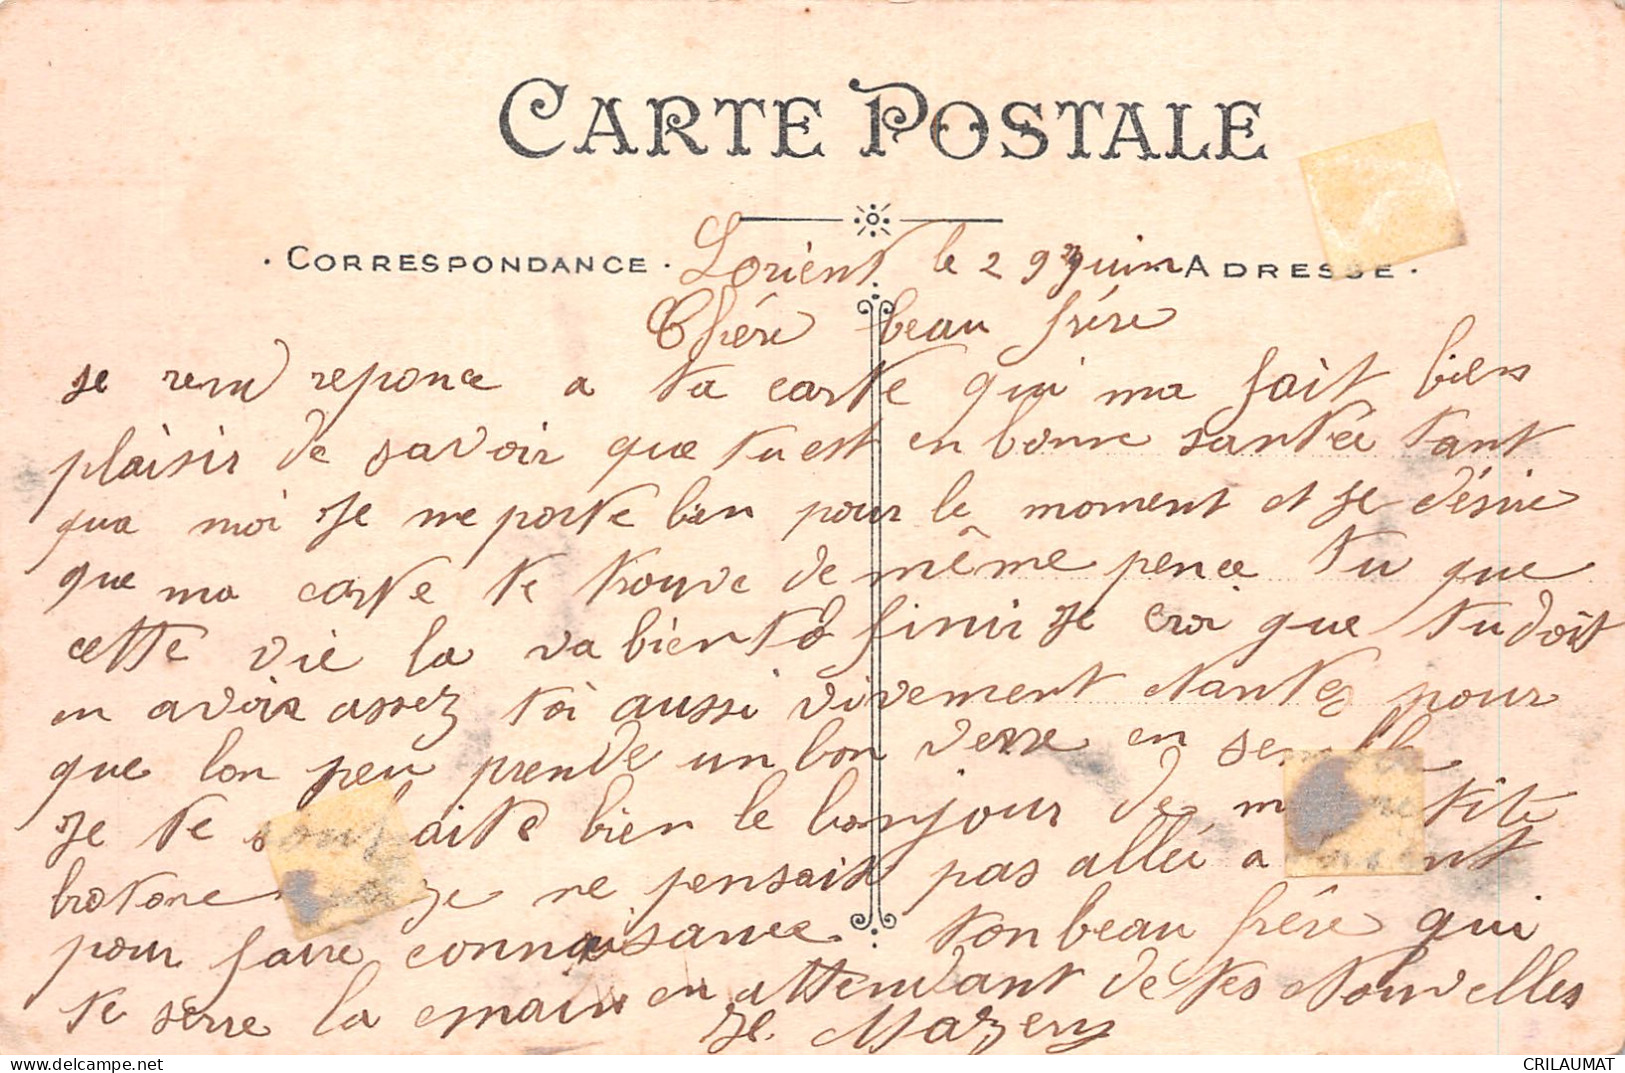 CARTE POSTALE
· CORRESPONDANCE · Lorient le 29 juin ADRESSE ·
Chére beau frére
je ren reponce a ta carte qui ma fait bien
plaisir de savoir que tu est en bonne santée tant
qua moi Je me porte bien pour le moment et Je désire
que ma carte te trouve de même pence tu que
cette vie la va biento finir Je croi que tu doit
en avoir assez toi aussi vivement
pour
que lon peu prende un bon verre en semble
Je te souhaite bien le bonjour de ma petite
brotone Je ne pensait pas allée a
pour faire connaisance ton beau frére qui
te sérre la main en attendant de tes nouvelles
Je. Mazery
Delcampe.net
CRILAUMAT